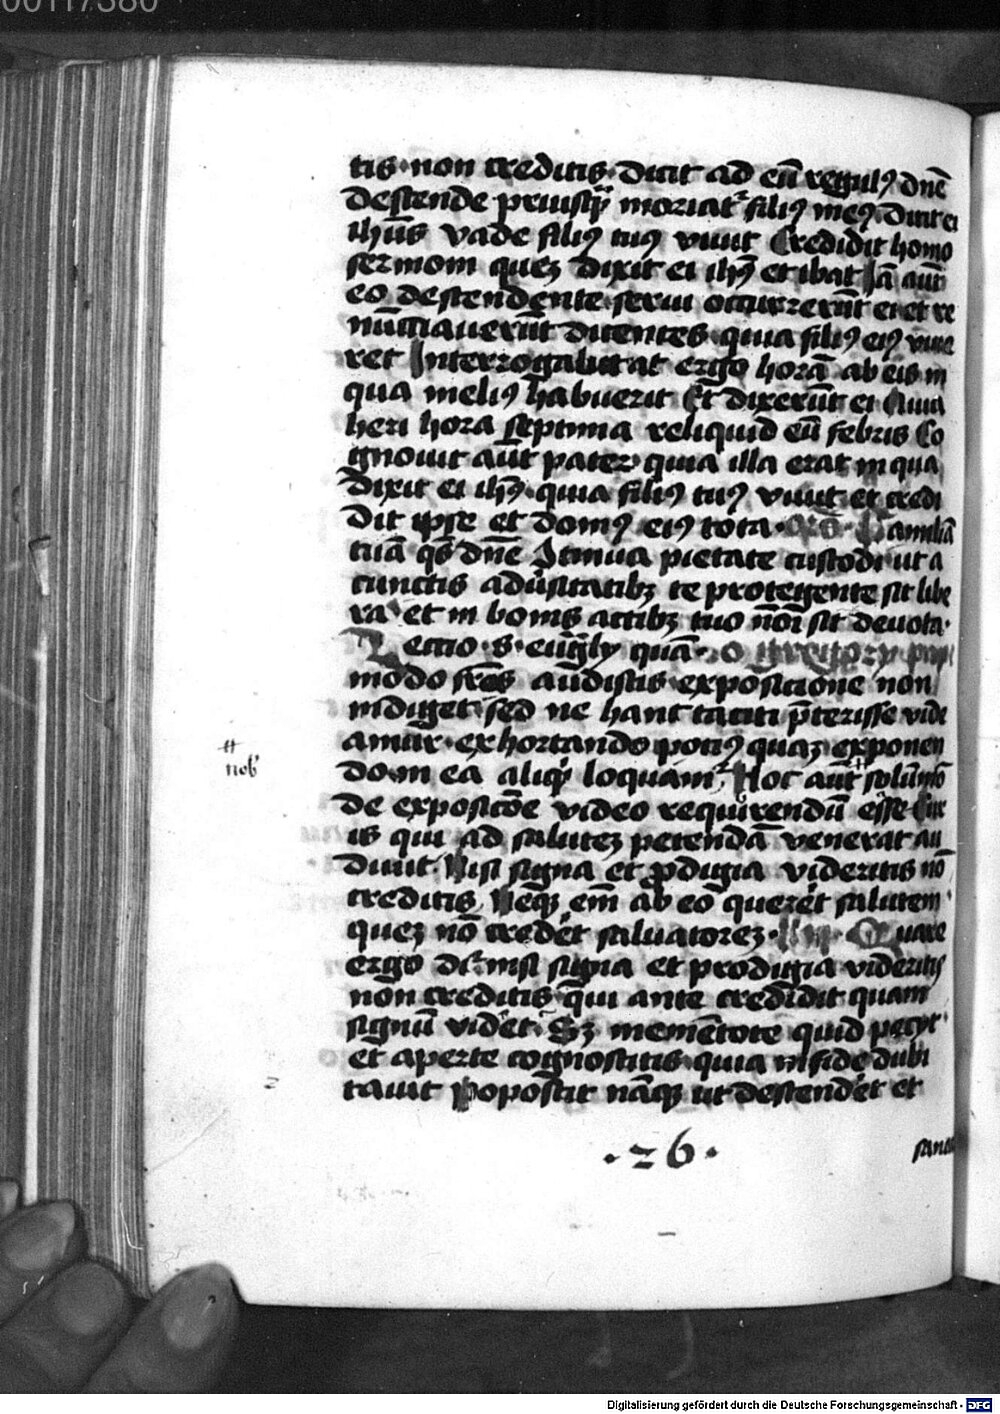 00117380
tis · non creditis · Dicit ad eū regulꝰ dn̄e
descende priusqͣ moriatᷣ filiꝰ meꝰ · Dicit ei
ih̄us vade filiꝰ tuꝰ viuit Credidit homo
sermoni quez dixit ei ih̄s et ibat Iā aūt
eo descendente serui occurrerūt ei et re
nūciauerūt dicentes · quia filiꝰ eiꝰ viue
ret Interrogabat ergo horā ab eis in
qua meliꝰ habuerit Et dixerūt ei Quia
heri hora septima reliquid eū febris Co
gnouit aūt pater quia illa erat in qua
dixit ei ih̄s · quia filiꝰ tuꝰ viuit et credi
dit ipse et domꝰ eiꝰ tota · Familiā
tuā qs̄ dn̄e 9tinua pietate custodi ut a
cunctis adūsitatibꝫ te protegente sit libe
ra · et in bonis actibꝫ tuo nōi sit deuota ·
Lectio · s · euūgly quā · o gregory pap
modo fr̄es audistis expositione non
indiget · sed ne hanc taciti p̄terisse vide
amur · exhortando potiꝰ quaz exponen
do · in ea aliqͥd loquamᷣ Hoc aūt solūmō
nob̄
de exposicōe video requirendū esse Cur
is qui ad salutez petendā venerat au
diuit · Nisi signa et prodigia videritis nō
creditis Neqꝫ em̄ ab eo quereret salutem
quez nō crederet saluatorez · Quare
ergo dr̄ nisi signa et prodigia videritis
non creditis · qui ante credidit quam
signū videret · Sꝫ mementote quid petyt ·
et aperte cognoscitis · quia in fide dubi
tauit Poposcit nāqꝫ ut descenderet et
· 26 ·
sana
Digitalisierung gefördert durch die Deutsche Forschungsgemeinschaft - DFG